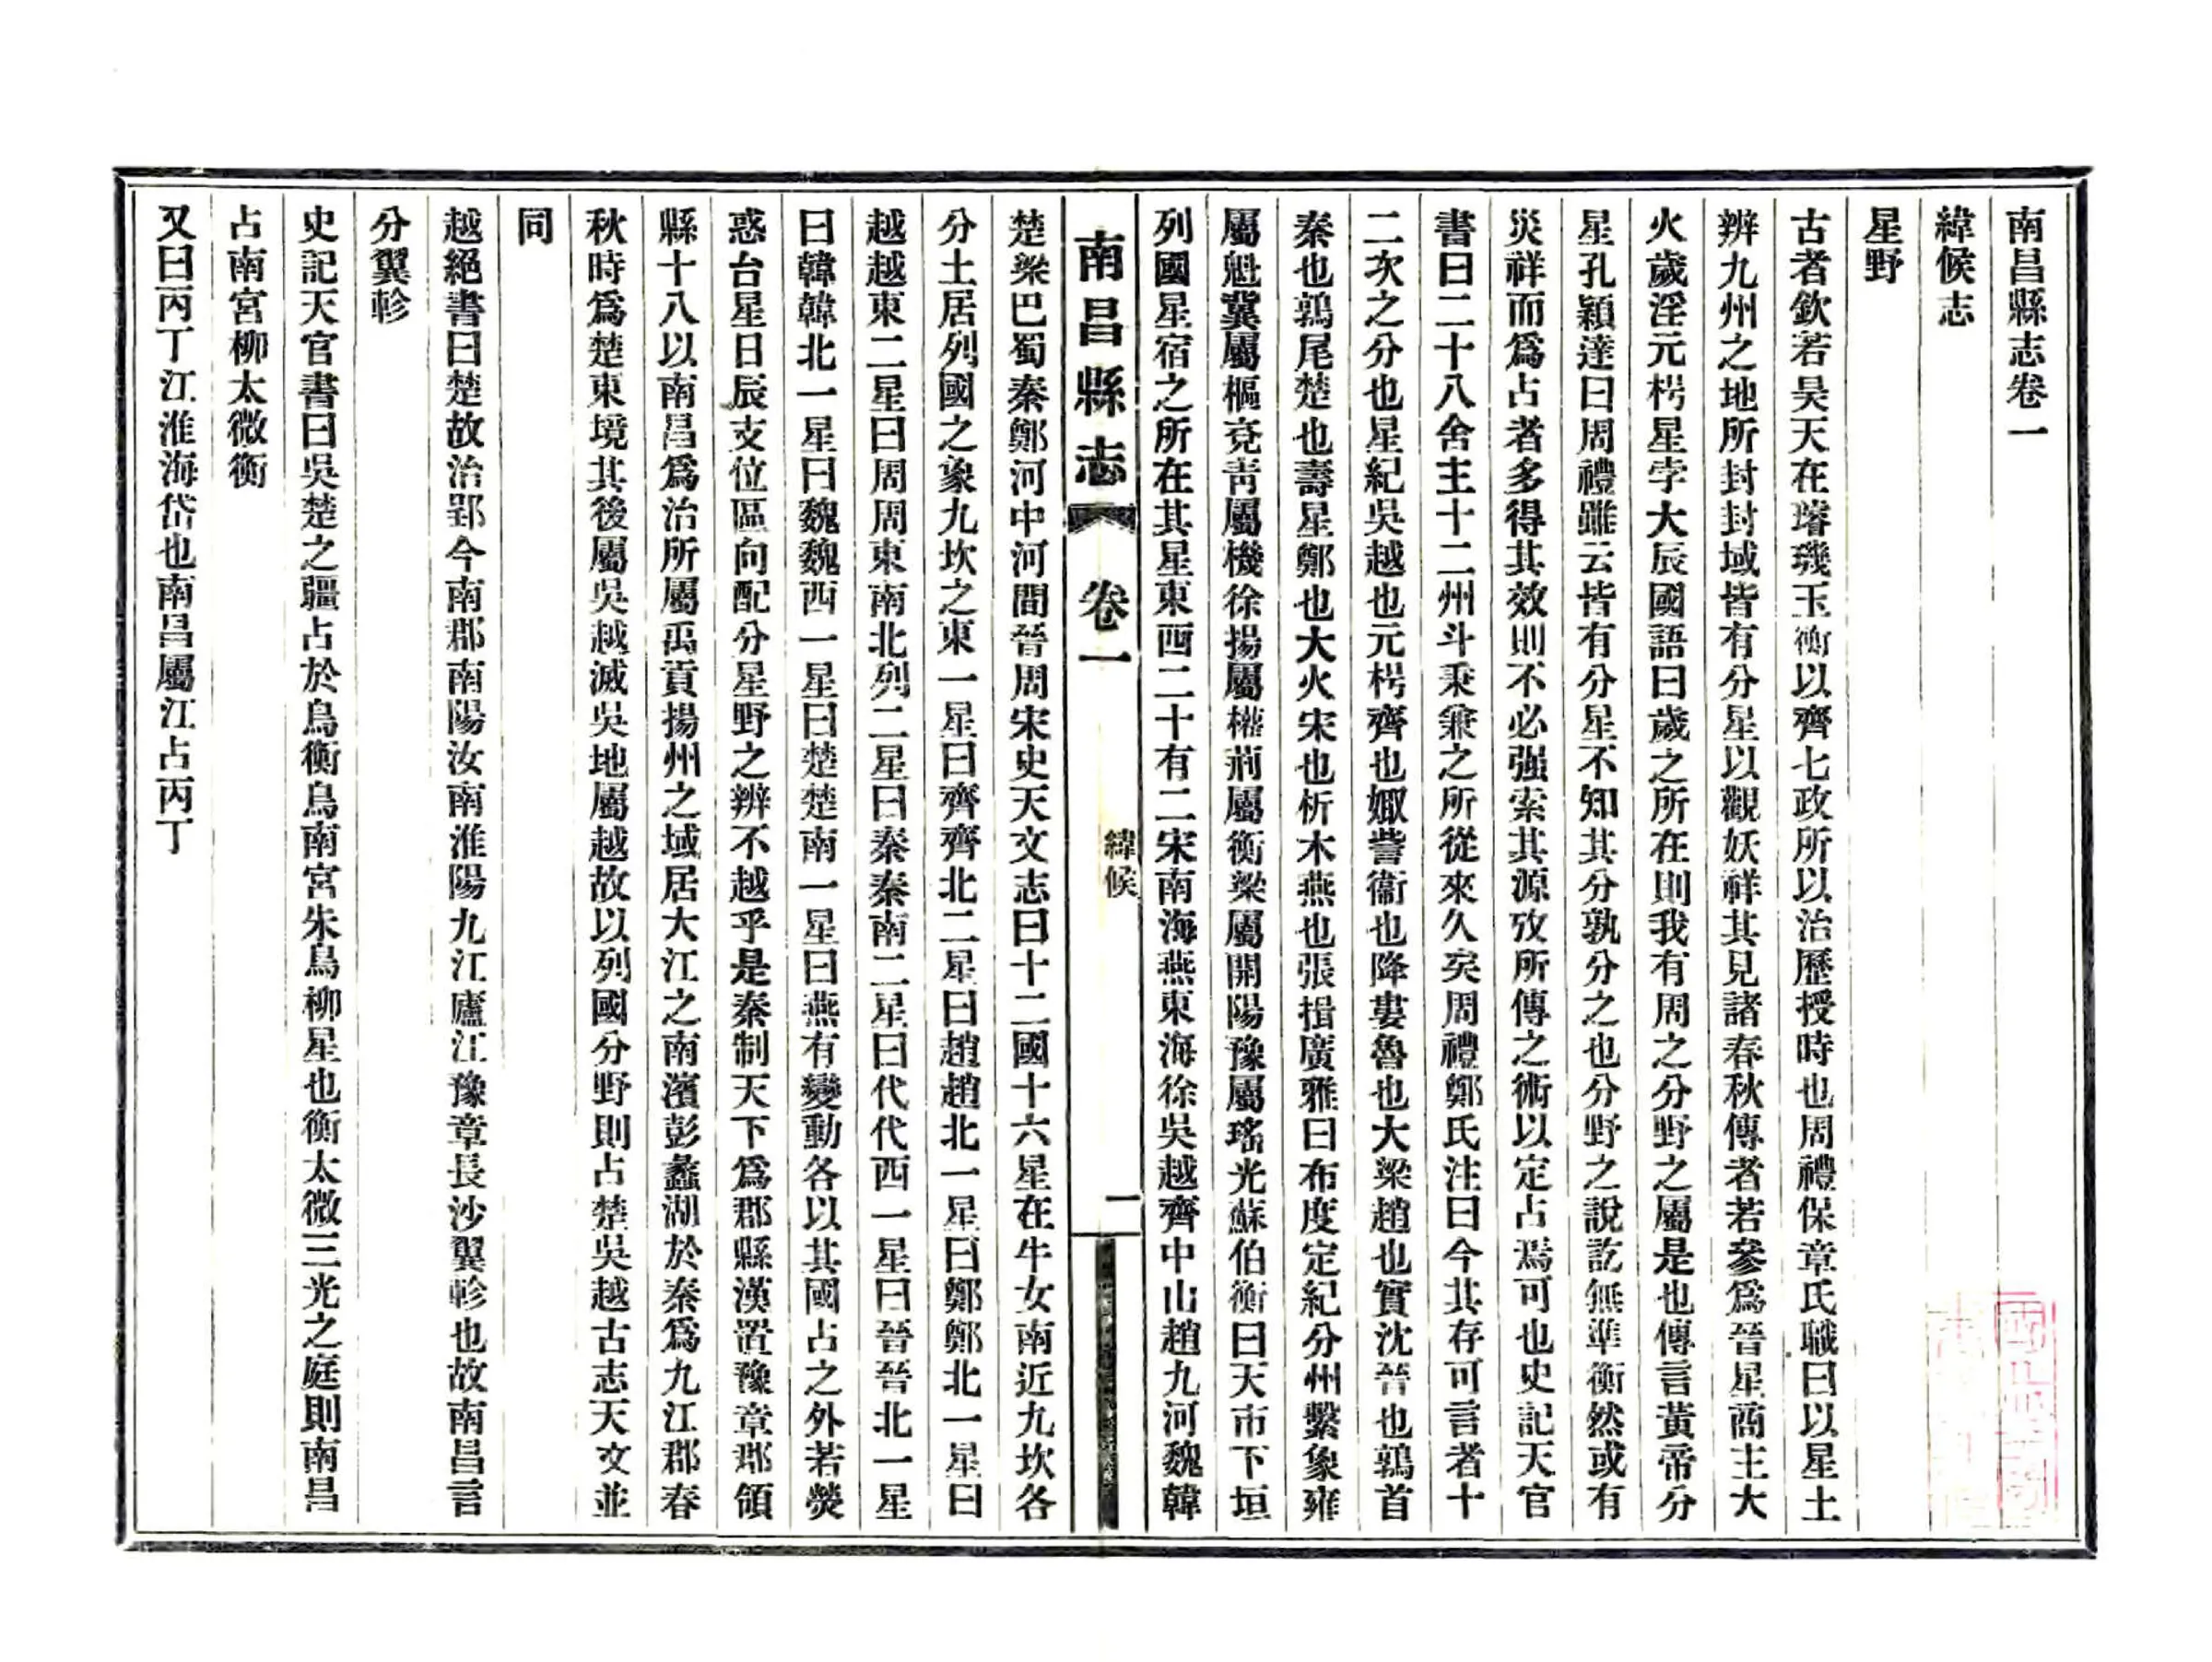 南昌縣志卷一
緯候志
星野
古者欽若昊天在璿璣玉衡以齊七政所以治歷授時也周禮保章氏職曰以星土
辨九州之地所封封域皆有分星以觀妖祥其見諸春秋傳者若參爲晉星商主大
火歲淫元枵星孛大辰國語曰歲之所在則我有周之分野之屬是也傳言黃帝分
星孔穎達曰周禮雖云皆有分星不知其分孰分之也分野之說訖無準衡然或有
災祥而爲占者多得其效則不必强索其源攷所傳之術以定占焉可也史記天官
書曰二十八舍主十二州斗秉兼之所從來久矣周禮鄭氏注曰今其存可言者十
二次之分也星紀吳越也元枵齊也娵訾衞也降婁魯也大梁趙也實沈晉也鶉首
秦也鶉尾楚也壽星鄭也大火宋也析木燕也張揖廣雅曰布度定紀分州繫象雍
屬魁冀屬樞兗靑屬機徐揚屬權荊屬衡梁屬開陽豫屬瑤光蘇伯衡曰天市下垣
列國星宿之所在其星東西二十有二宋南海燕東海徐吳越齊中山趙九河魏韓
南昌縣志 卷一 緯候 一
楚梁巴蜀秦鄭河中河間晉周宋史天文志曰十二國十六星在牛女南近九坎各
分土居列國之象九坎之東一星曰齊齊北二星曰趙趙北一星曰鄭鄭北一星曰
越越東二星曰周周東南北列二星曰秦秦南二星曰代代西一星曰晉晉北一星
曰韓韓北一星曰魏魏西一星曰楚楚南一星曰燕有變動各以其國占之外若熒
惑台星日辰支位區向配分星野之辨不越乎是秦制天下爲郡縣漢置豫章郡領
縣十八以南昌爲治所屬禹貢揚州之域居大江之南濱彭蠡湖於秦爲九江郡春
秋時爲楚東境其後屬吳越滅吳地屬越故以列國分野則占楚吳越古志天文並
同
越絕書曰楚故治郢今南郡南陽汝南淮陽九江廬江豫章長沙翼軫也故南昌言
分翼軫
史記天官書曰吳楚之疆占於鳥衡鳥南宮朱鳥柳星也衡太微三光之庭則南昌
占南宮柳太微衡
又曰丙丁江淮海岱也南昌屬江占丙丁